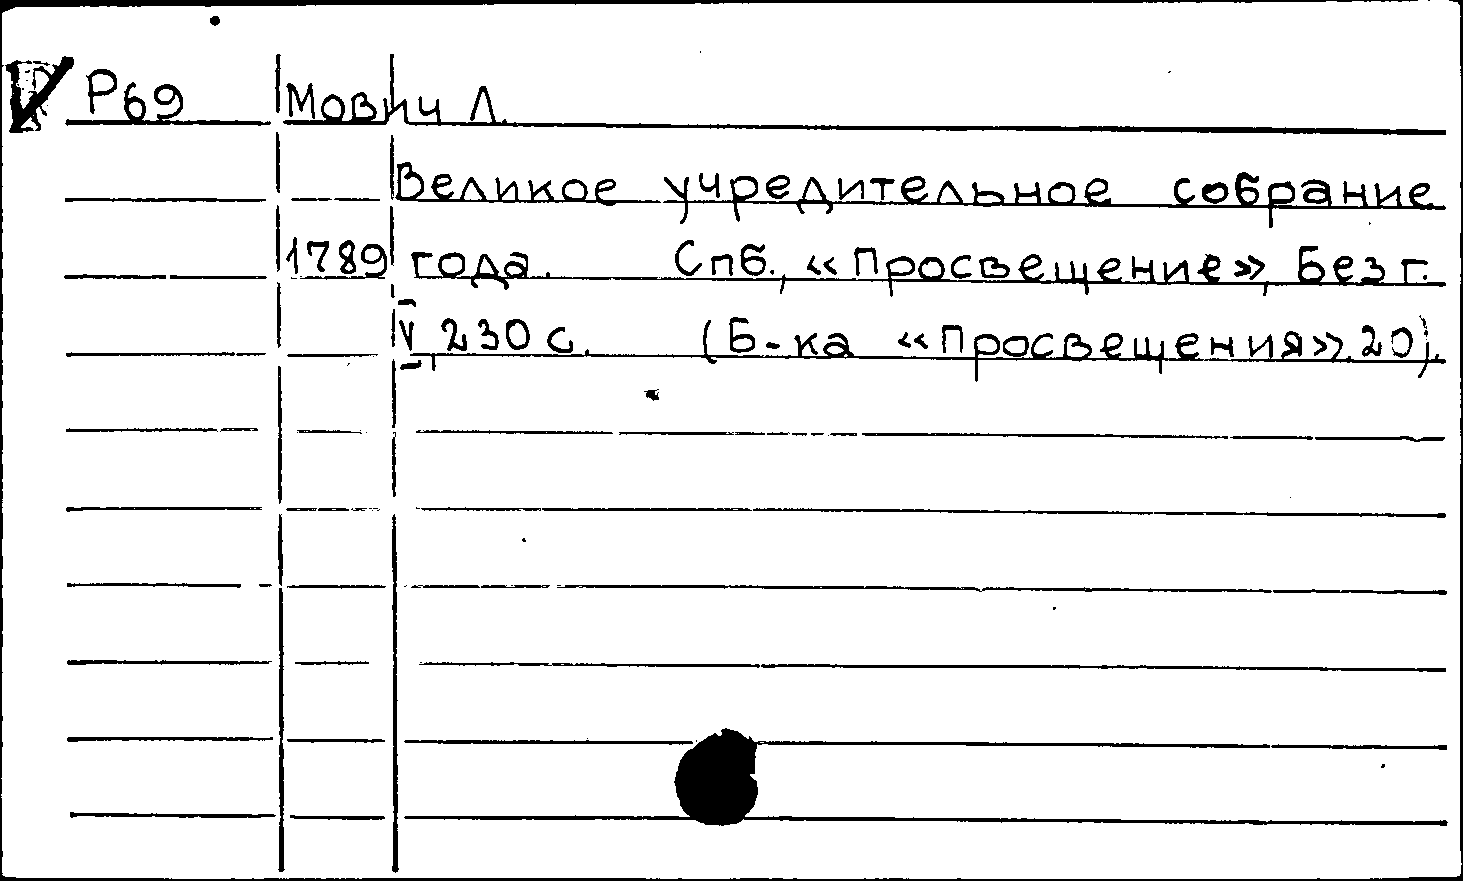 Р69 Мович Л.
Великое учредительное собрание
1789 года. Спб., «Просвещение», Без г.
V, 230 с. (Б-ка «Просвещения». 20).